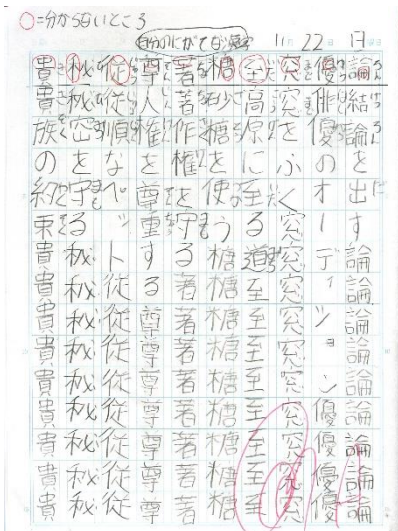 ○=分からないところ
自分のにがてな漢字
11月22日
論結論を出す論論論論論論論論論
優俳優のオーディション優優優優
窓窓をふく窓窓窓窓窓窓窓窓窓窓
至高原に至る道至至至至至至至至
糖砂糖を使う糖糖糖糖糖糖糖糖糖
著著作権を守る著著著著著著著著
尊人権を尊重する尊尊尊尊尊尊尊
従従順なペット従従従従従従従従
秘秘密を守る秘秘秘秘秘秘秘秘秘
貴貴族の約束貴貴貴貴貴貴貴貴貴